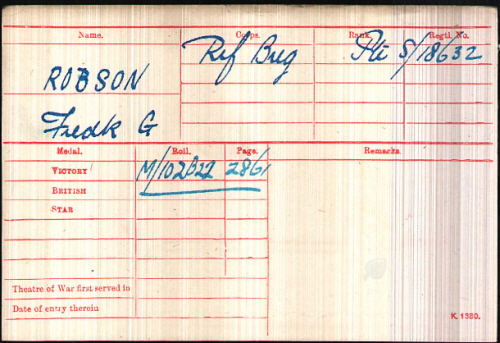 Name.
Corps.
Rank.
Regtl. No.
ROBSON
Rif Brig
Pte
S/18632
Fredk G
Medal.
Roll.
Page.
Remarks.
VICTORY
M/102B22
2861
BRITISH
STAR
Theatre of War first served in
Date of entry therein
K. 1380.